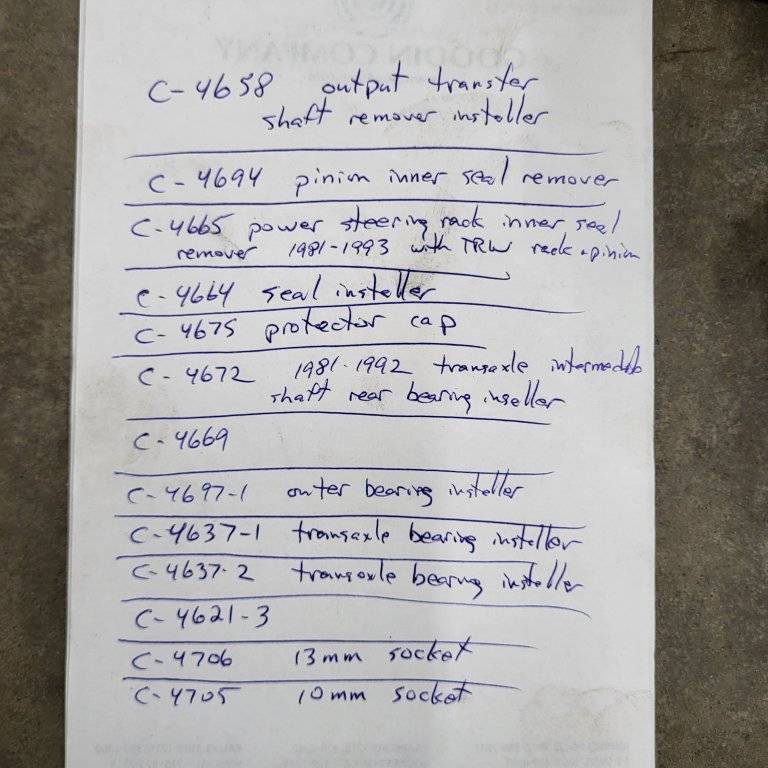 C-4658 output transfer
shaft remover installer
C-4694 pinion inner seal remover
C-4665 power steering rack inner seal
remover 1981-1993 with TRW rack + pinion
C-4664 seal installer
C-4675 protector cap
C-4672 1981-1992 transaxle
shaft rear bearing insteller
C-4669
C-4697-1 outer bearing installer
C-4637-1 transaxle bearing installer
C-4637-2 transaxle bearing installer
C-4621-3
C-4706 13mm socket
C-4705 10mm socket